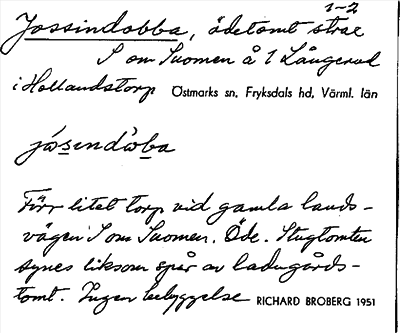 1-2
Jossindobba, ödetomt strax
S om Suomen å 1 Långerud
i Hollandstorp Östmarks sn, Fryksdals hd, Värml. län
jósendòba
Förr litet torp vid gamla lands-
vägen S om Suomen. Öde. Stugtomten
synes liksom spår av ladugårds-
tomt. Ingen bebyggelse RICHARD BROBERG 1951